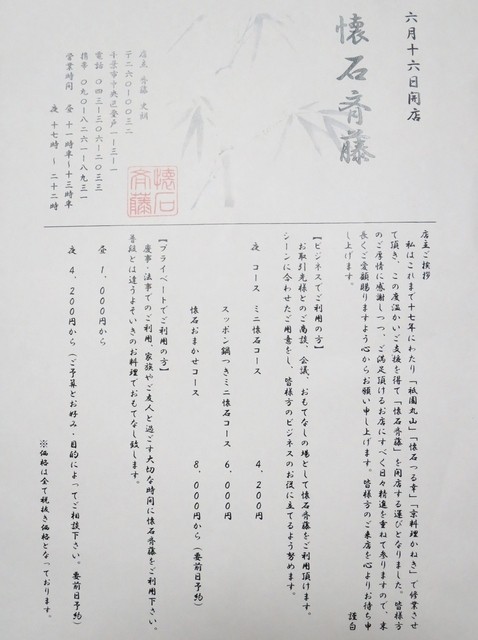 六月十六日開店
懐石斉藤
店主 斉藤 史綱
〒二六〇-〇〇三二
千葉市中央区登戸一-三-一
電話 〇四三-三〇六-二〇三三
携帯 〇九〇-八二六一-八九三一
営業時間 昼 十一時半〜十三時半
夜 十七時 〜 二十二時
懐石
斉藤
店主ご挨拶
私はこれまで十七年にわたり「祇園丸山」「懐石つる幸」「京料理かねき」で修業させ
て頂き、この度温かいご支援を得て「懐石斉藤」を開店する運びとなりました。皆様方
のご厚情に感謝しつつ、ご満足頂けるお店にすべく日々精進を重ねて参りますので、末
長くご愛顧賜りますよう心からお願い申し上げます。皆様方のご来店を心よりお待ち申
し上げます。
謹白
【ビジネスでご利用の方】
お取引先様とのご商談、会議、おもてなしの場として懐石斉藤をご利用頂けます。
シーンに合わせたご用意をし、皆様方のビジネスのお役に立てるよう努めます。
夜 コース ミニ懐石コース 4,200円
スッポン鍋つきミニ懐石コース 6,000円
懐石おまかせコース 8,000円から(要前日予約)
【プライベートでご利用の方】
慶事・法事でのご利用、家族やご友人と過ごす大切な時間に懐石斉藤をご利用下さい。
普段とは違うよそいきのお料理でおもてなし致します。
昼 1,000円から
夜 4,200円から(ご予算とお好み・目的によってご相談下さい。要前日予約)
※価格は全て税抜き価格となっております。